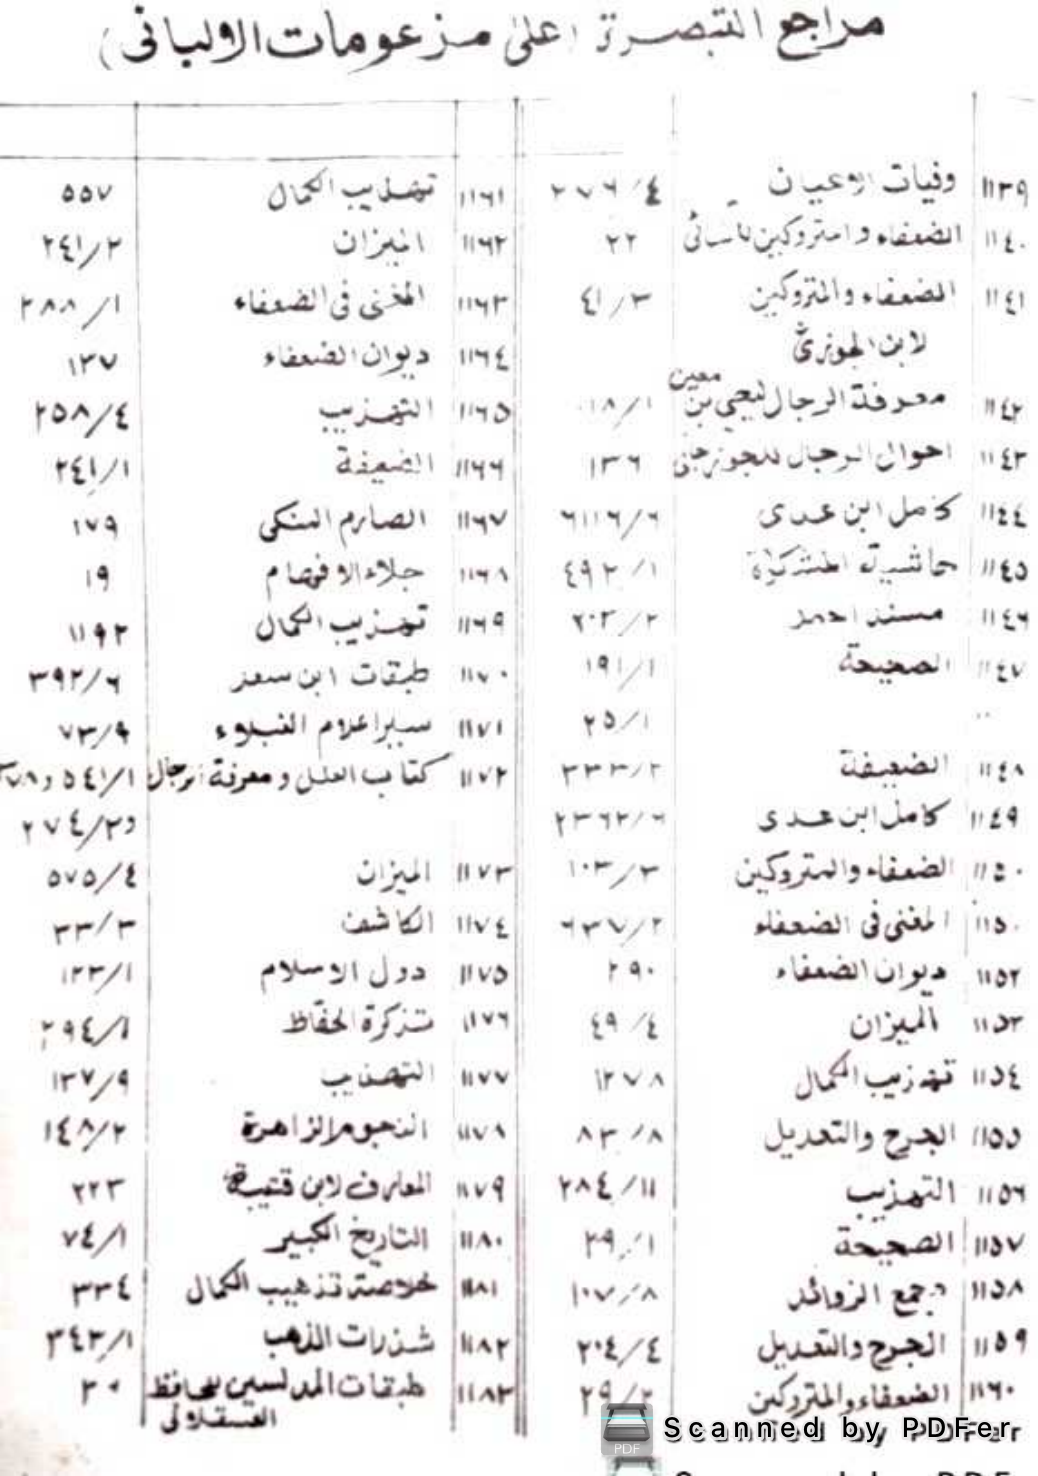 مراجع التبصرة (على مزعومات الالبانى)
١١٣٩ وفيات الاعيان ٤/٢٧٦
١١٤٠ الضعفاء والمتروكين للنسائى ٢٢
١١٤١ الضعفاء والمتروكين ٣/٤١
لابن الجوزىّ
١١٤٢ معرفة الرجال ليحيى بن معين
١١٤٣ احوال الرجال للجوزجانى ١٣٦
١١٤٤ كامل ابن عدى ٦/٢١١٦
١١٤٥ حاشية المشكوٰة ١/٤٩٢
١١٤٦ مسند احمد ٢/٢٠٣
١١٤٧ الصحيحة ١/١٩١
.. ١/٢٥
١١٤٨ الضعيفة ٢/٣٣٣
١١٤٩ كامل ابن عدى ٦/٢٣٦٢
١١٥٠ الضعفاء والمتروكين ٣/١٠٣
١١٥٠ المغنى فى الضعفاء ٢/٦٣٧
١١٥٢ ديوان الضعفاء ٢٩٠
١١٥٣ الميزان ٤/٤٩
١١٥٤ تهذيب الكمال ١٢٧٨
١١٥٥ الجرح والتعديل ٨/٨٣
١١٥٦ التهذيب ١١/٢٨٤
١١٥٧ الصحيحة ١/٢٩
١١٥٨ مجمع الزوائد ٨/١٠٧
١١٥٩ الجرح والتعديل ٤/٢٠٤
١١٦٠ الضعفاء والمتروكين ٢/٢٩
١١٦١ تهذيب الكمال ٥٥٧
١١٦٢ الميزان ٢/٢٤١
١١٦٣ المغنى فى الضعفاء ١/٢٨٨
١١٦٤ ديوان الضعفاء ١٣٧
١١٦٥ التهذيب ٤/٢٥٨
١١٦٦ الضعيفة ١/٢٤١
١١٦٧ الصارم المنكى ١٧٩
١١٦٨ جلاء الافهام ١٩
١١٦٩ تهذيب الكمال ١١٩٢
١١٧٠ طبقات ابن سعد ٦/٣٩٢
١١٧١ سير اعلام النبلاء ٩/٧٣
١١٧٢ كتاب العلل ومعرفة الرجال ١/٥٤١
و٢/٢٧٤
١١٧٣ الميزان ٤/٥٧٥
١١٧٤ الكاشف ٣/٣٣
١١٧٥ دول الاسلام ١/١٢٣
١١٧٦ تذكرة الحفاظ ١/٢٩٤
١١٧٧ التهذيب ٩/١٣٧
١١٧٨ النجوم الزاهرة ٢/١٤٨
١١٧٩ المعارف لابن قتيبة ٢٢٣
١١٨٠ التاريخ الكبير ١/٧٤
١١٨١ خلاصة تذهيب الكمال ٣٣٤
١١٨٢ شذرات الذهب ١/٣٤٣
١١٨٣ طبقات المدلسين للحافظ ٣٠
العسقلانى
PDF
Scanned by PDFer